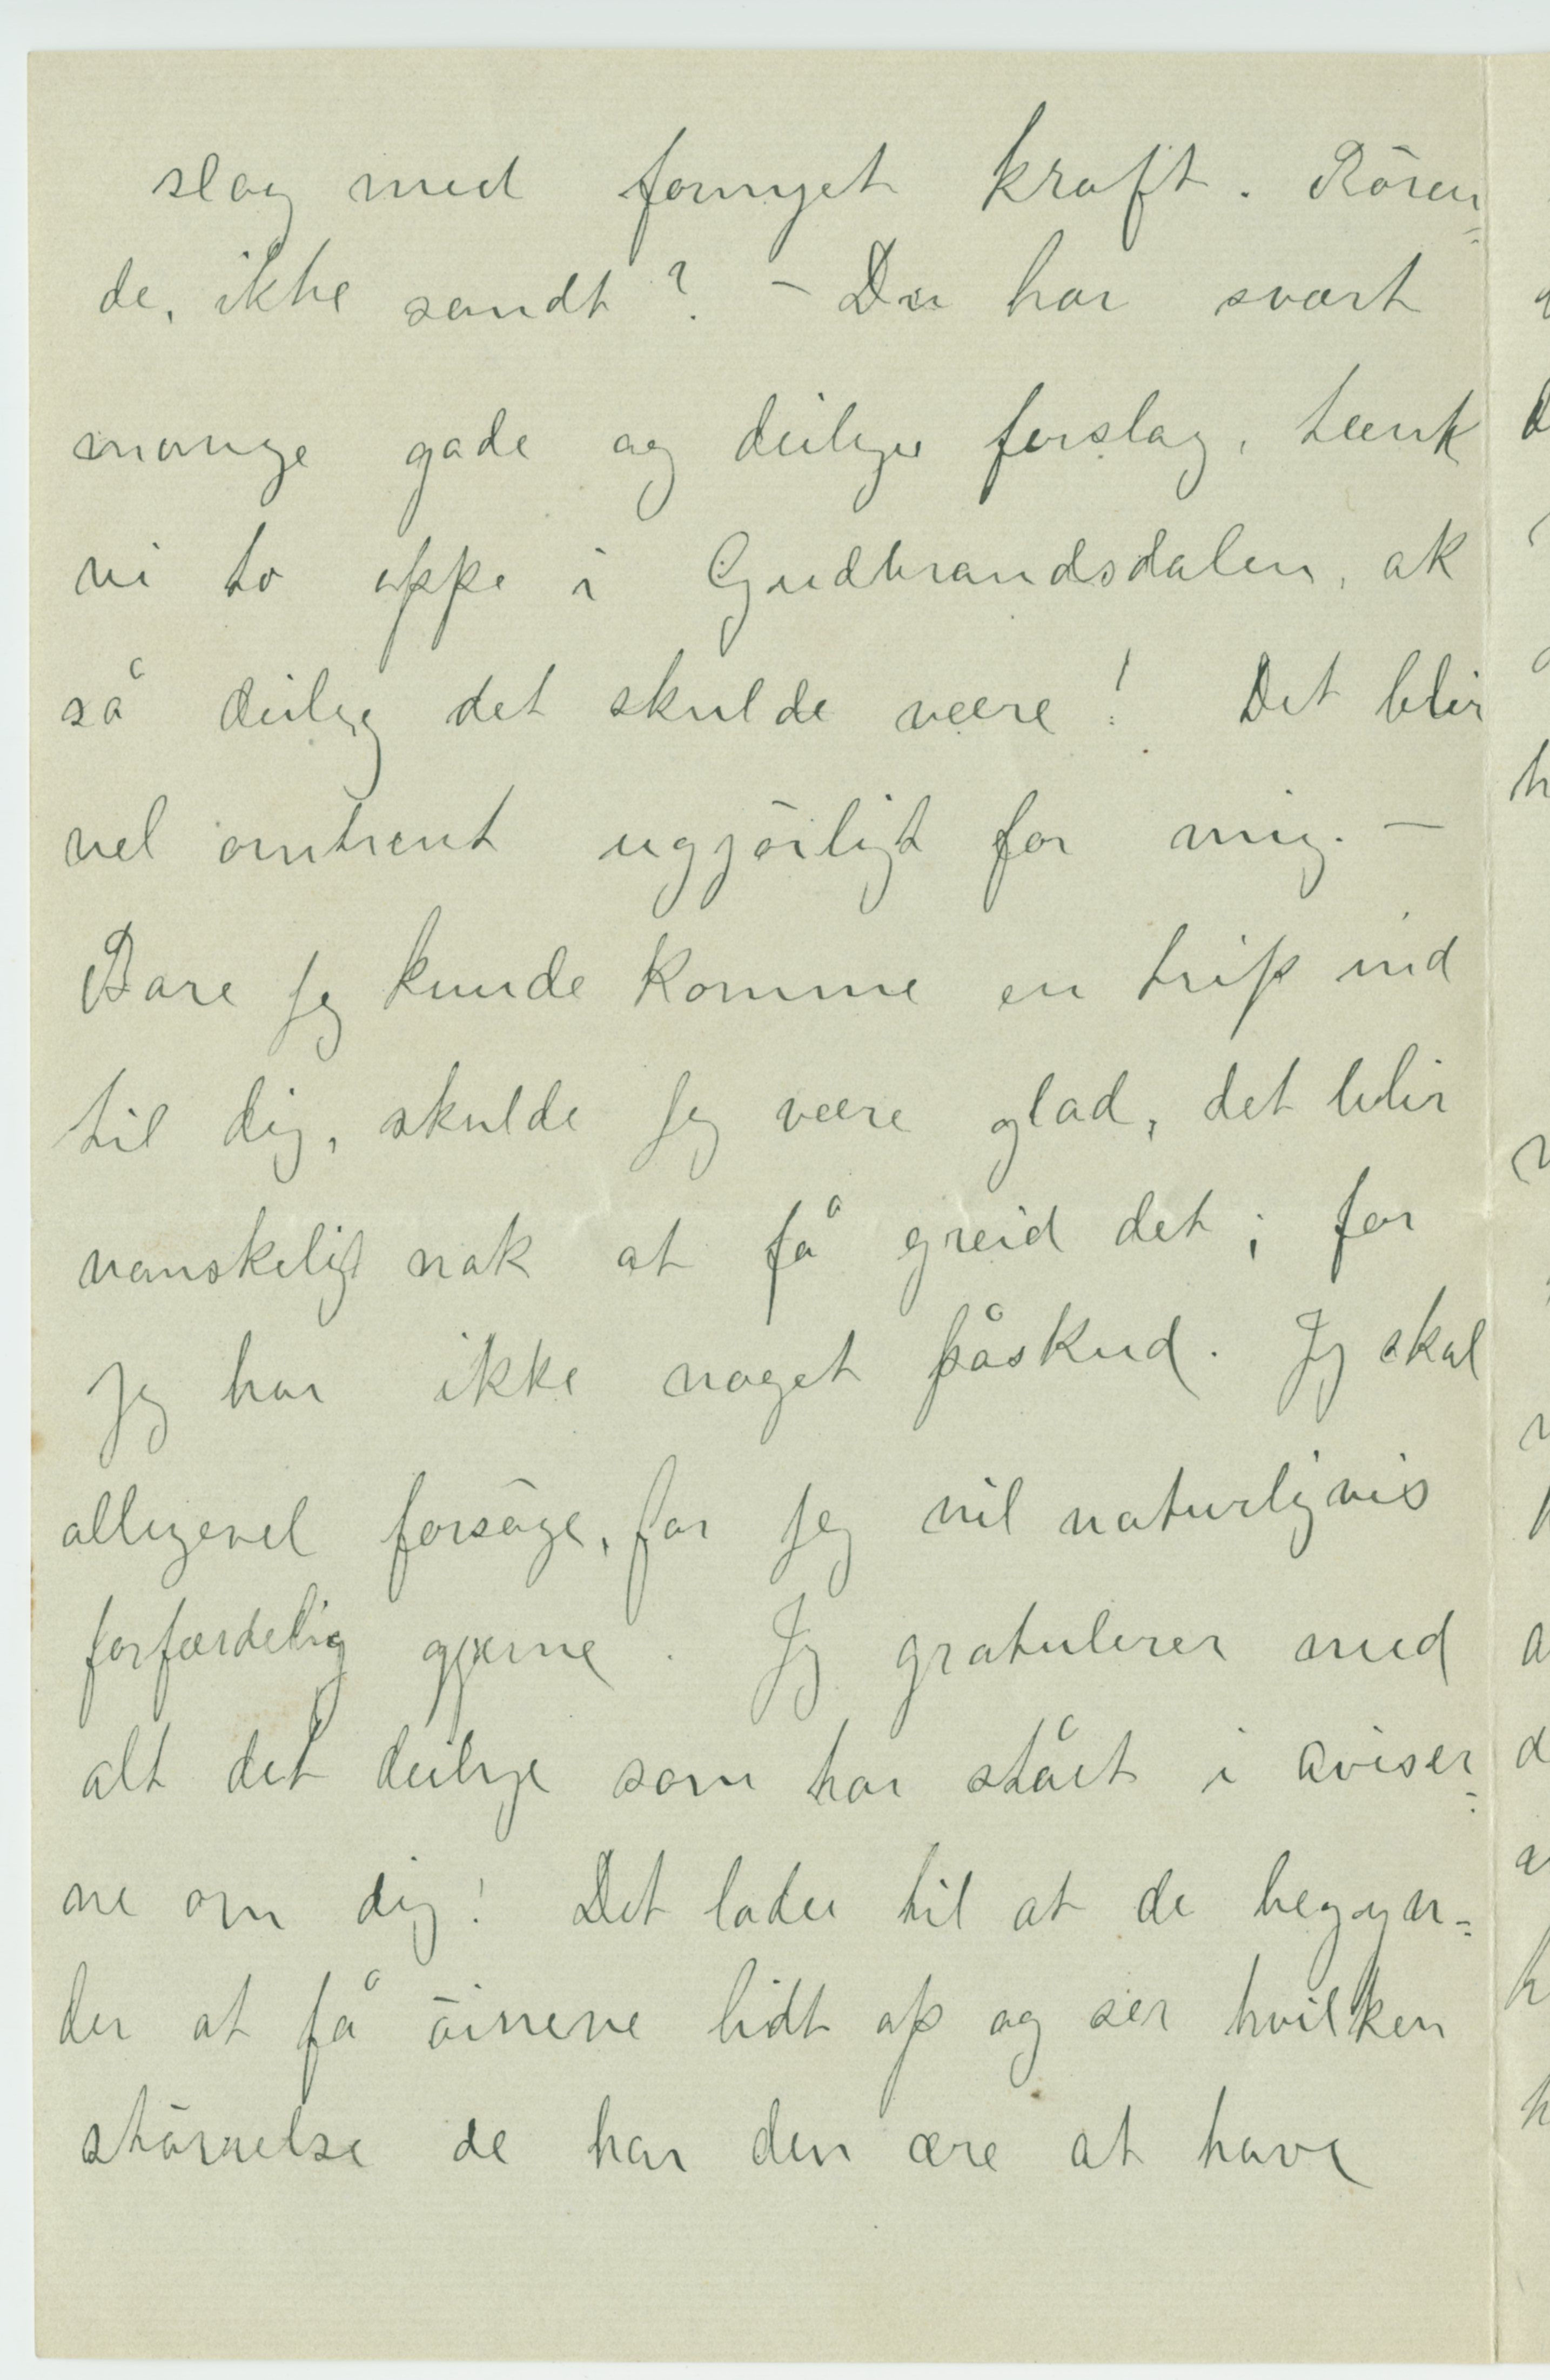 slag med fornyet kraft. Rören=
de, ikke sandt? – Du har svært
mange gode og deilige forslag, tænk
vi to oppe i Gudbrandsdalen, ak
så deilig det skulde være! Det blir
vel omtrent ugjörligt for mig. –
Bare jeg kunde komme en trip ind
til dig, skulde jeg være glad, det blir
vanskeligt nok at få greid det; for
jeg har ikke noget påskud. Jeg skal
alligevel forsöge, for jeg vil naturligvis
forfærdelig gjærne. Jeg gratulerer med
alt det deilige som har stået i aviser=
ne om dig! Det lader til at de begyn=
der at få öinene lidt op og ser hvilken
störrelse de har den ære at have